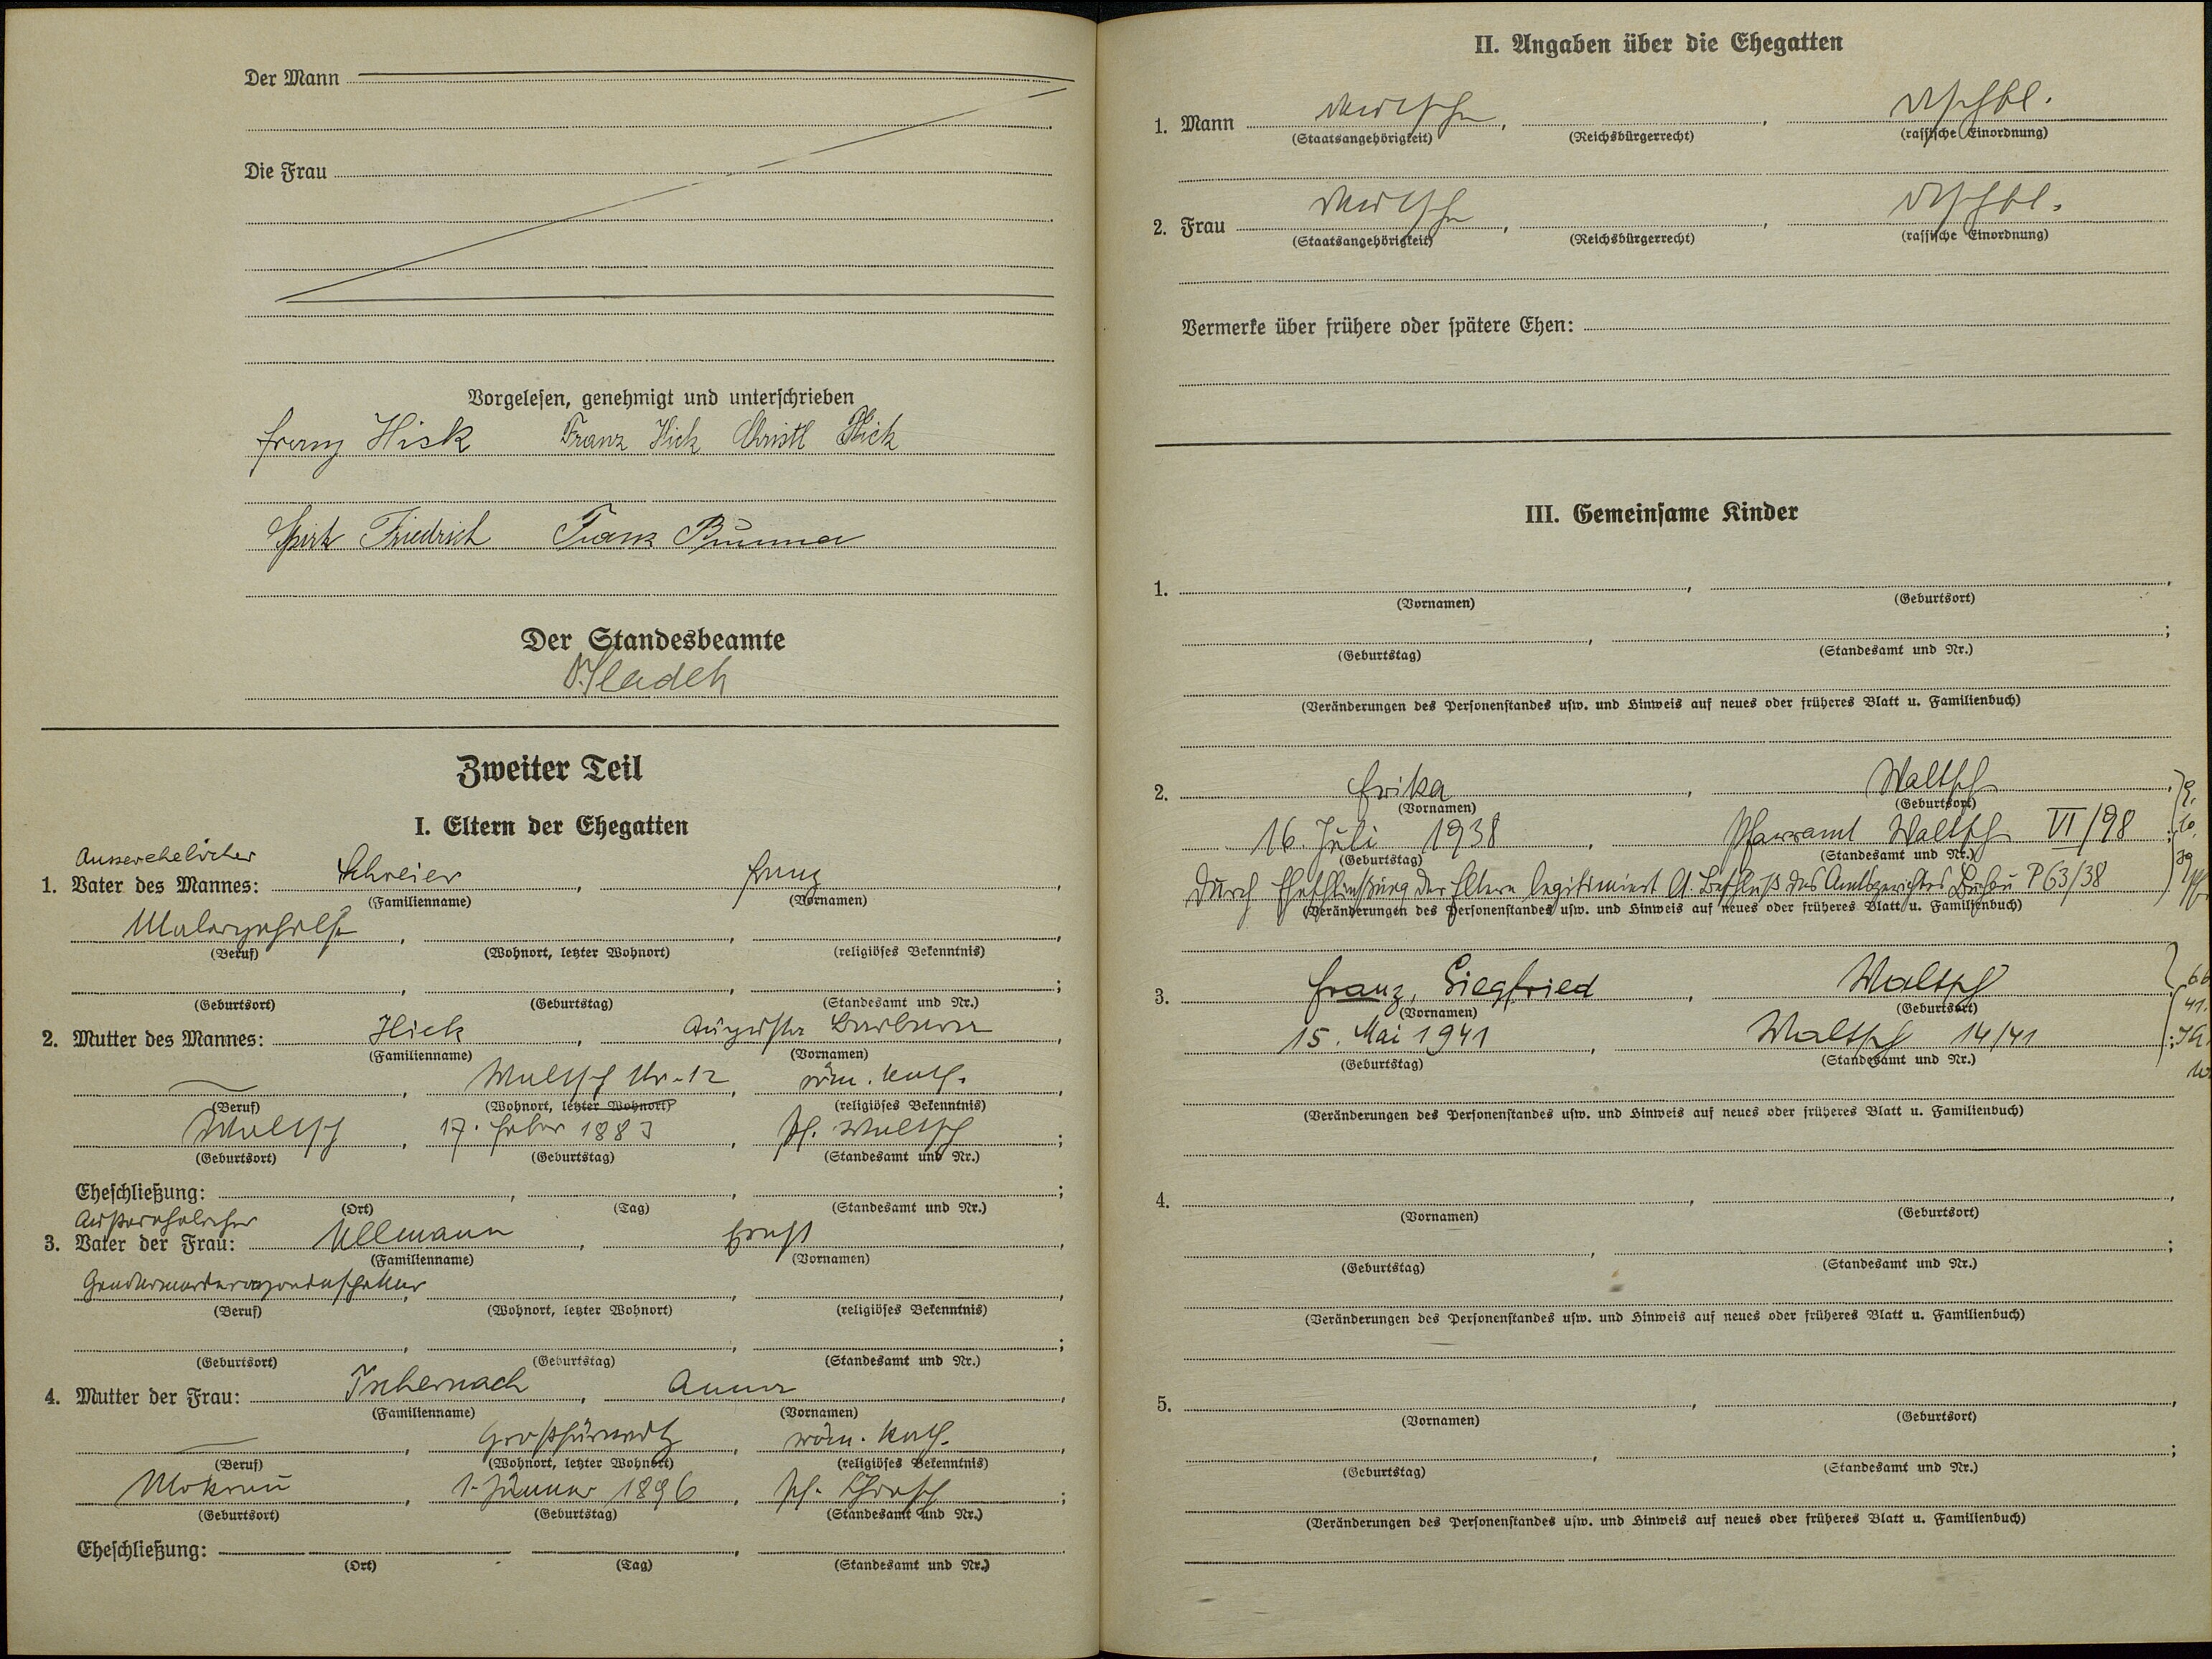 Der Mann
Die Frau
Vorgelesen, genehmigt und unterschrieben
Franz Hick Christl Hick
Friedrich Franz
Der Standesbeamte
Zweiter Teil
I. Eltern der Ehegatten
Ausserehelicher
1. Vater des Mannes: Schreier, Franz,
(Familienname) (Vornamen)
Malergehilfe, , ,
(Beruf) (Wohnort, letzter Wohnort) (religiöses Bekenntnis)
(Geburtsort) (Geburtstag) (Standesamt und Nr.)
2. Mutter des Mannes: Hick, Auguste Barbara,
(Familienname) (Vornamen)
Waltsch Nr. 12, röm. kath.
(Beruf) (Wohnort, letzter Wohnort) (religiöses Bekenntnis)
Waltsch, 17. Feber 1883, Pf. Waltsch;
(Geburtsort) (Geburtstag) (Standesamt und Nr.)
Eheschließung:
(Ort) (Tag) (Standesamt und Nr.)
Außerehelicher
3. Vater der Frau: Ullmann Ernst,
(Familienname) (Vornamen)
(Beruf) (Wohnort, letzter Wohnort) (religiöses Bekenntnis)
(Geburtsort) (Geburtstag) (Standesamt und Nr.)
4. Mutter der Frau: Tschernach, Anna,
(Familienname) (Vornamen)
röm. kath.
(Beruf) (Wohnort, letzter Wohnort) (religiöses Bekenntnis)
Mokrau, 1. Jänner 1896, Pf.
(Geburtsort) (Geburtstag) (Standesamt und Nr.)
Eheschließung:
(Ort) (Tag) (Standesamt und Nr.)
II. Angaben über die Ehegatten
1. Mann deutsche, , dtschbl.
(Staatsangehörigkeit) (Reichsbürgerrecht) (rassische Einordnung)
2. Frau deutsche, , dtschbl.
(Staatsangehörigkeit) (Reichsbürgerrecht) (rassische Einordnung)
Vermerke über frühere oder spätere Ehen:
III. Gemeinsame Kinder
1.
(Vornamen) (Geburtsort)
(Geburtstag) (Standesamt und Nr.)
(Veränderungen des Personenstandes usw. und Hinweis auf neues oder früheres Blatt u. Familienbuch)
2. Erika, Waltsch,
(Vornamen) (Geburtsort)
16. Juli 1938, Pfarramt Waltsch VI/98
(Geburtstag) (Standesamt und Nr.)
Durch Eheschließung der Eltern legitimiert lt. Beschluß des Amtsgerichtes P 63/38
(Veränderungen des Personenstandes usw. und Hinweis auf neues oder früheres Blatt u. Familienbuch)
3. Franz, Siegfried, Waltsch
(Vornamen) (Geburtsort)
15. Mai 1941, Waltsch 14/41
(Geburtstag) (Standesamt und Nr.)
(Veränderungen des Personenstandes usw. und Hinweis auf neues oder früheres Blatt u. Familienbuch)
4.
(Vornamen) (Geburtsort)
(Geburtstag) (Standesamt und Nr.)
(Veränderungen des Personenstandes usw. und Hinweis auf neues oder früheres Blatt u. Familienbuch)
5.
(Vornamen) (Geburtsort)
(Geburtstag) (Standesamt und Nr.)
(Veränderungen des Personenstandes usw. und Hinweis auf neues oder früheres Blatt u. Familienbuch)